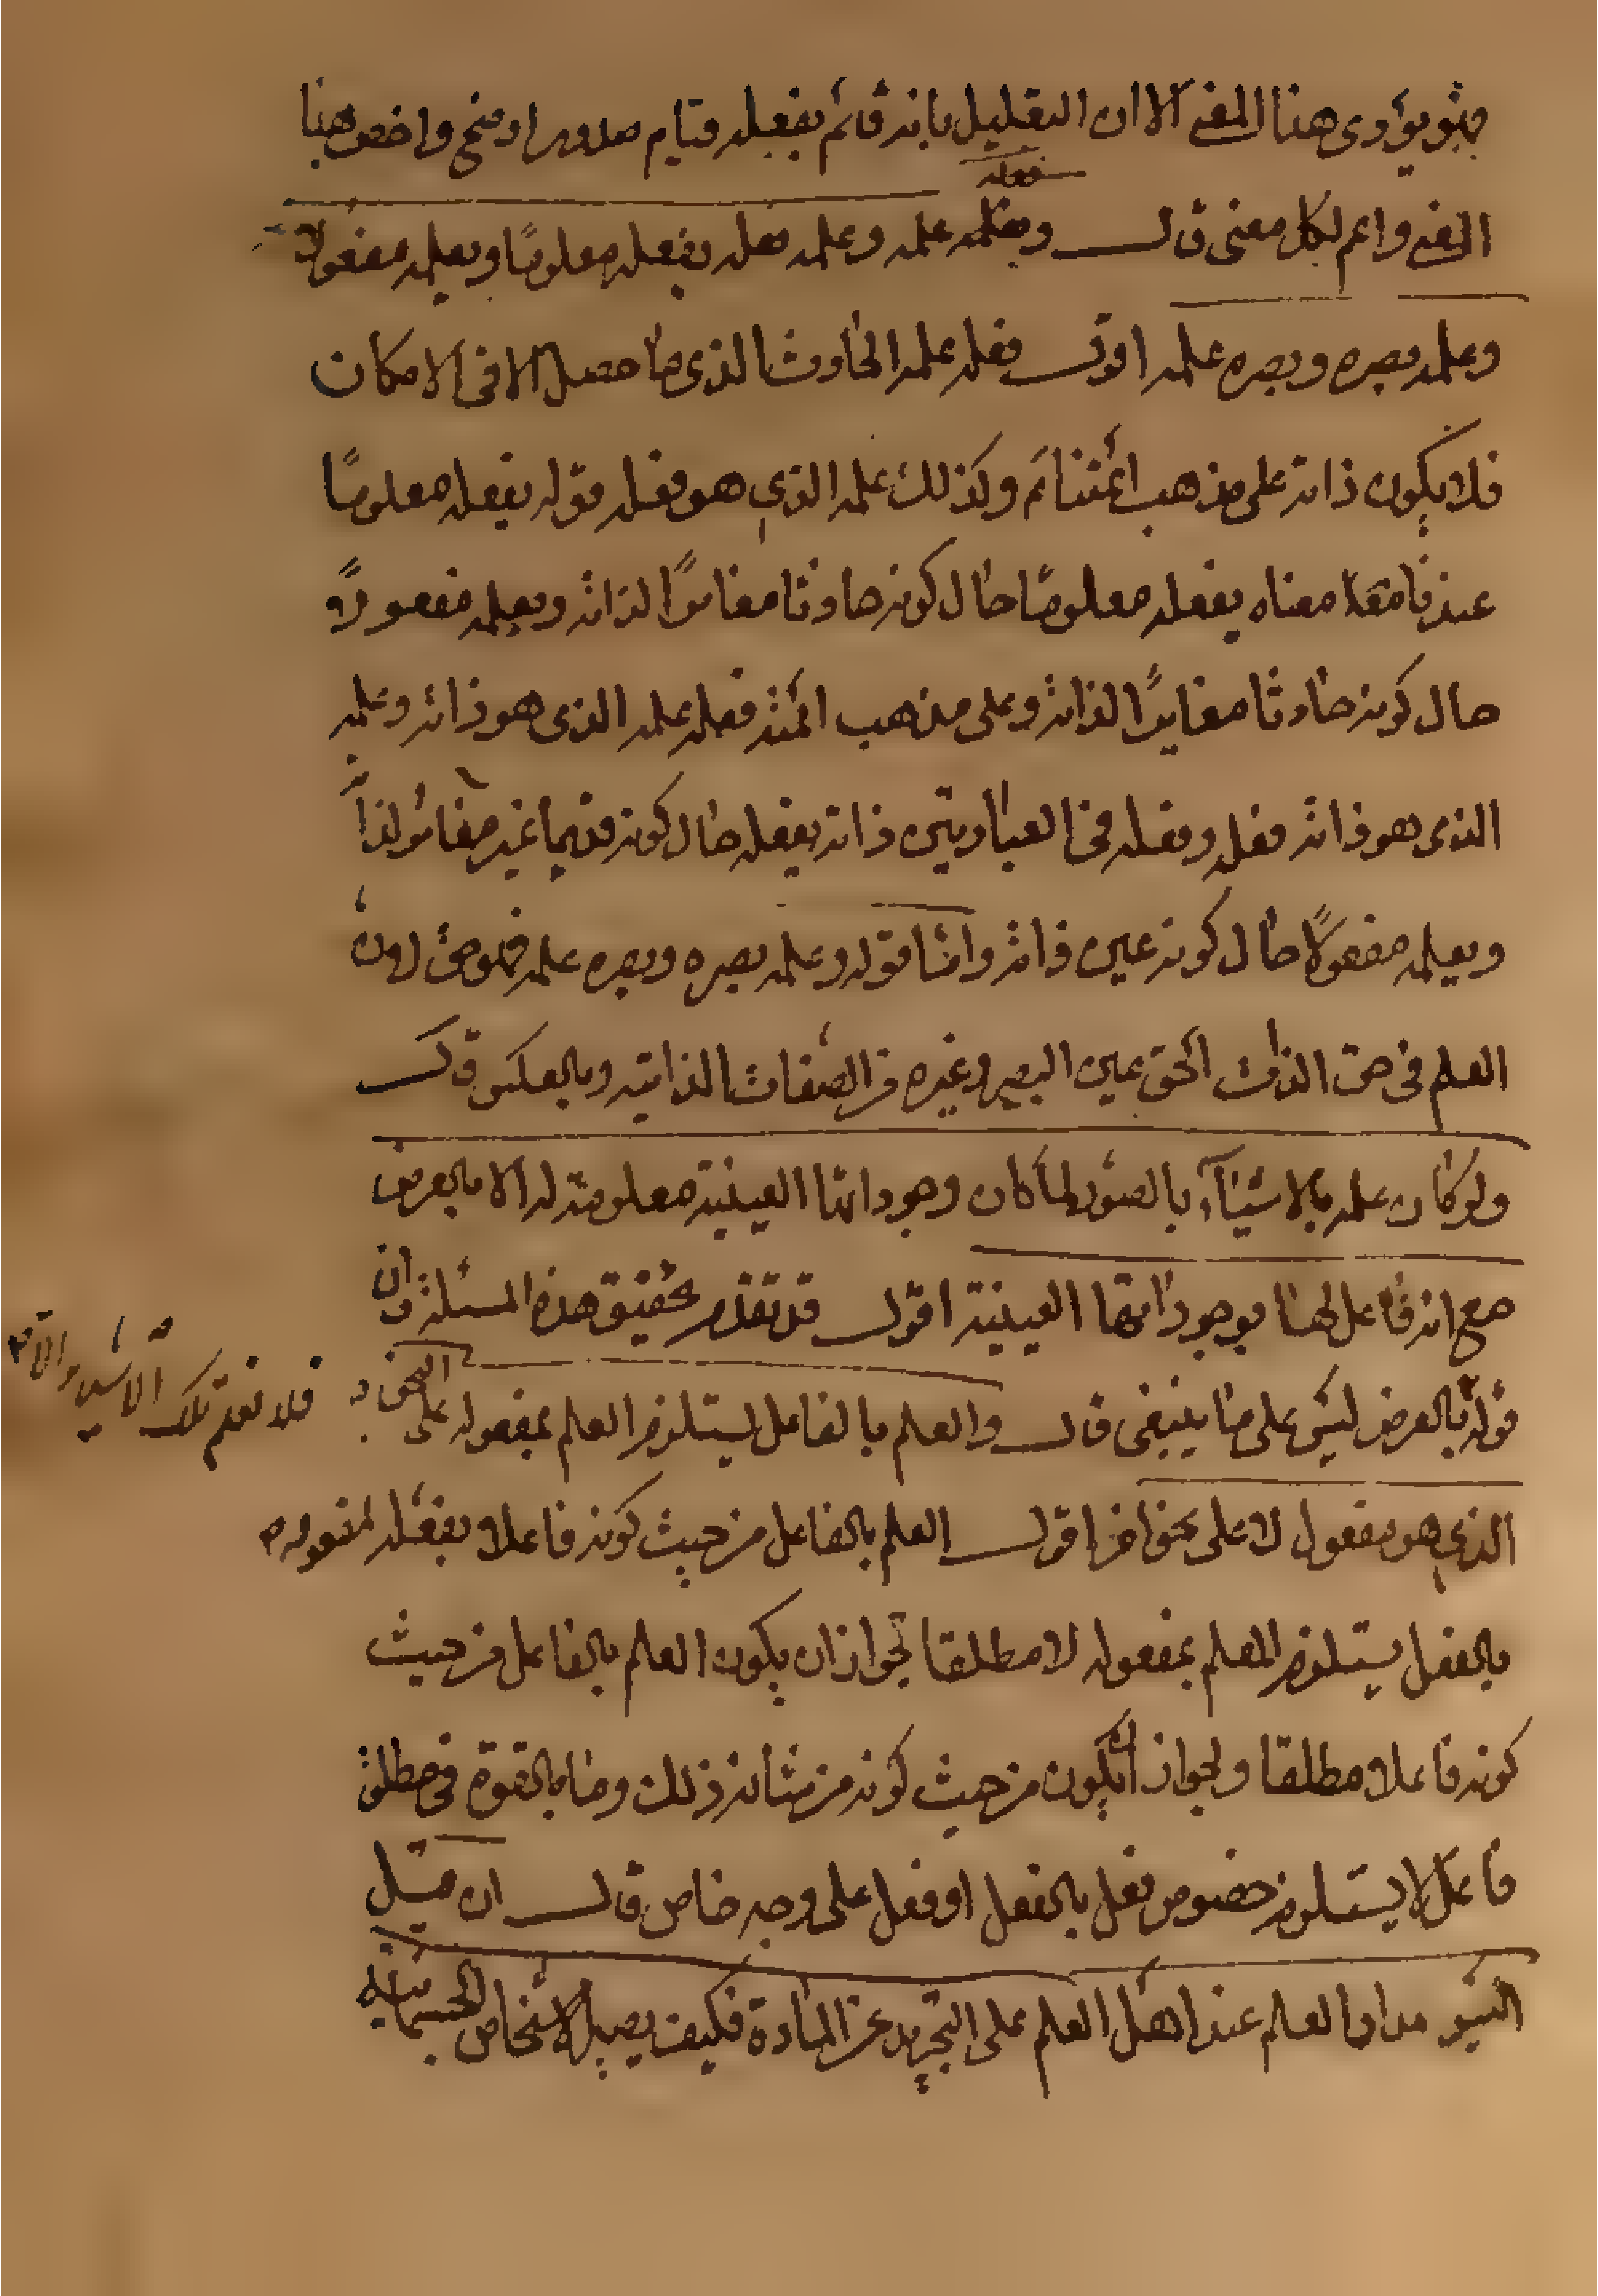 فهو يؤدى هنا المعنى الا ان التعليل بانه قائم بفعله قيام صدور اوضح واخص هنا
المعنى واعم لكل معنى قال وفعله علمه وعلمه فعله يفعله معلومًا ويعلمه مفعولا
فعله
وعلمه بصره وبصره علمه اقول فعله علمه الحادث الذى ما حصل الا فى الامكان
فلا يكون ذاته على مذهب ائمتنا ع وكذلك علمه الذي هو فعله قوله يفعله معلومًا
عندنا معناه يفعله معلومًا حال كونه حادثا مغايرًا لذاته ويعلمه مفعولًا
حال كونه حادثا مغايرًا لذاته وعلى مذهب ائمته فعله علمه الذى هو ذاته وعلمه
الذى هو ذاته فعله وفعله فى العبارتين ذاته يفعله حال كونه قديما غير مغاير لذاته
ويعلمه مفعولًا حال كونه عين ذاته واما قوله وعلمه بصره وبصره علمه فهو حق لان
العلم فى حق الذات الحق عين البصر وغيره من الصفات الذاتيه وبالعكس قال
ولو كان علمه بالاشياء بالصور لما كان وجوداتها العينية معلومة له الا بالعرض
مع انه فاعل لها بوجوداتها العينية اقول قد تقدم تحقيق هذه المسئلة وان
قوله بالعرض ليس على ما ينبغى قال والعلم بالفاعل يستلزم العلم بمفعوله على النحو
فلا نعلم تلك
الذي هو مفعول لا على نحو اخر اقول العلم بالفاعل من حيث كونه فاعلا بفعله لمفعوله
بالفعل يستلزم العلم بمفعوله لا مطلقا لجواز ان يكون العلم بالفاعل من حيث
كونه فاعلا مطلقا ولجواز ان يكون من حيث كونه من شانه ذلك وما بالقوة فى مطلق
فاعل لا يستلزم خصوص فعل بالفعل او فعل على وجه خاص قال ان قيل
اليس مدار العلم عند اهل العلم على التجريد عن المادة فكيف يصير الاشخاص الجسمانية